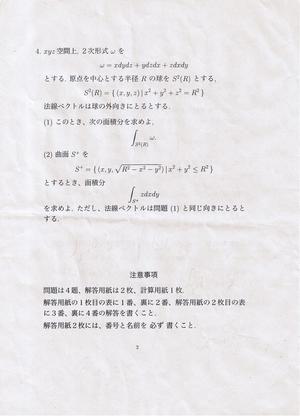 4. xyz 空間上, 2次形式 ω を
ω = xdydz + ydzdx + zdxdy
とする. 原点を中心とする半径 R の球を S²(R) とする,
S²(R) = { (x, y, z) | x² + y² + z² = R² }
法線ベクトルは球の外向きにとるとする.
(1) このとき, 次の面積分を求めよ.
∫_{S²(R)} ω.
(2) 曲面 S⁺ を
S⁺ = { (x, y, √(R² − x² − y²)) | x² + y² ≤ R² }
とするとき, 面積分
∫_{S⁺} zdxdy
を求めよ. ただし, 法線ベクトルは問題 (1) と同じ向きにとると
する.
注意事項
問題は4題、解答用紙は2枚、計算用紙1枚.
解答用紙の1枚目の表に1番、裏に2番、解答用紙の2枚目の表
に3番、裏に4番の解答を書くこと.
解答用紙2枚には、番号と名前を 必ず 書くこと.
2